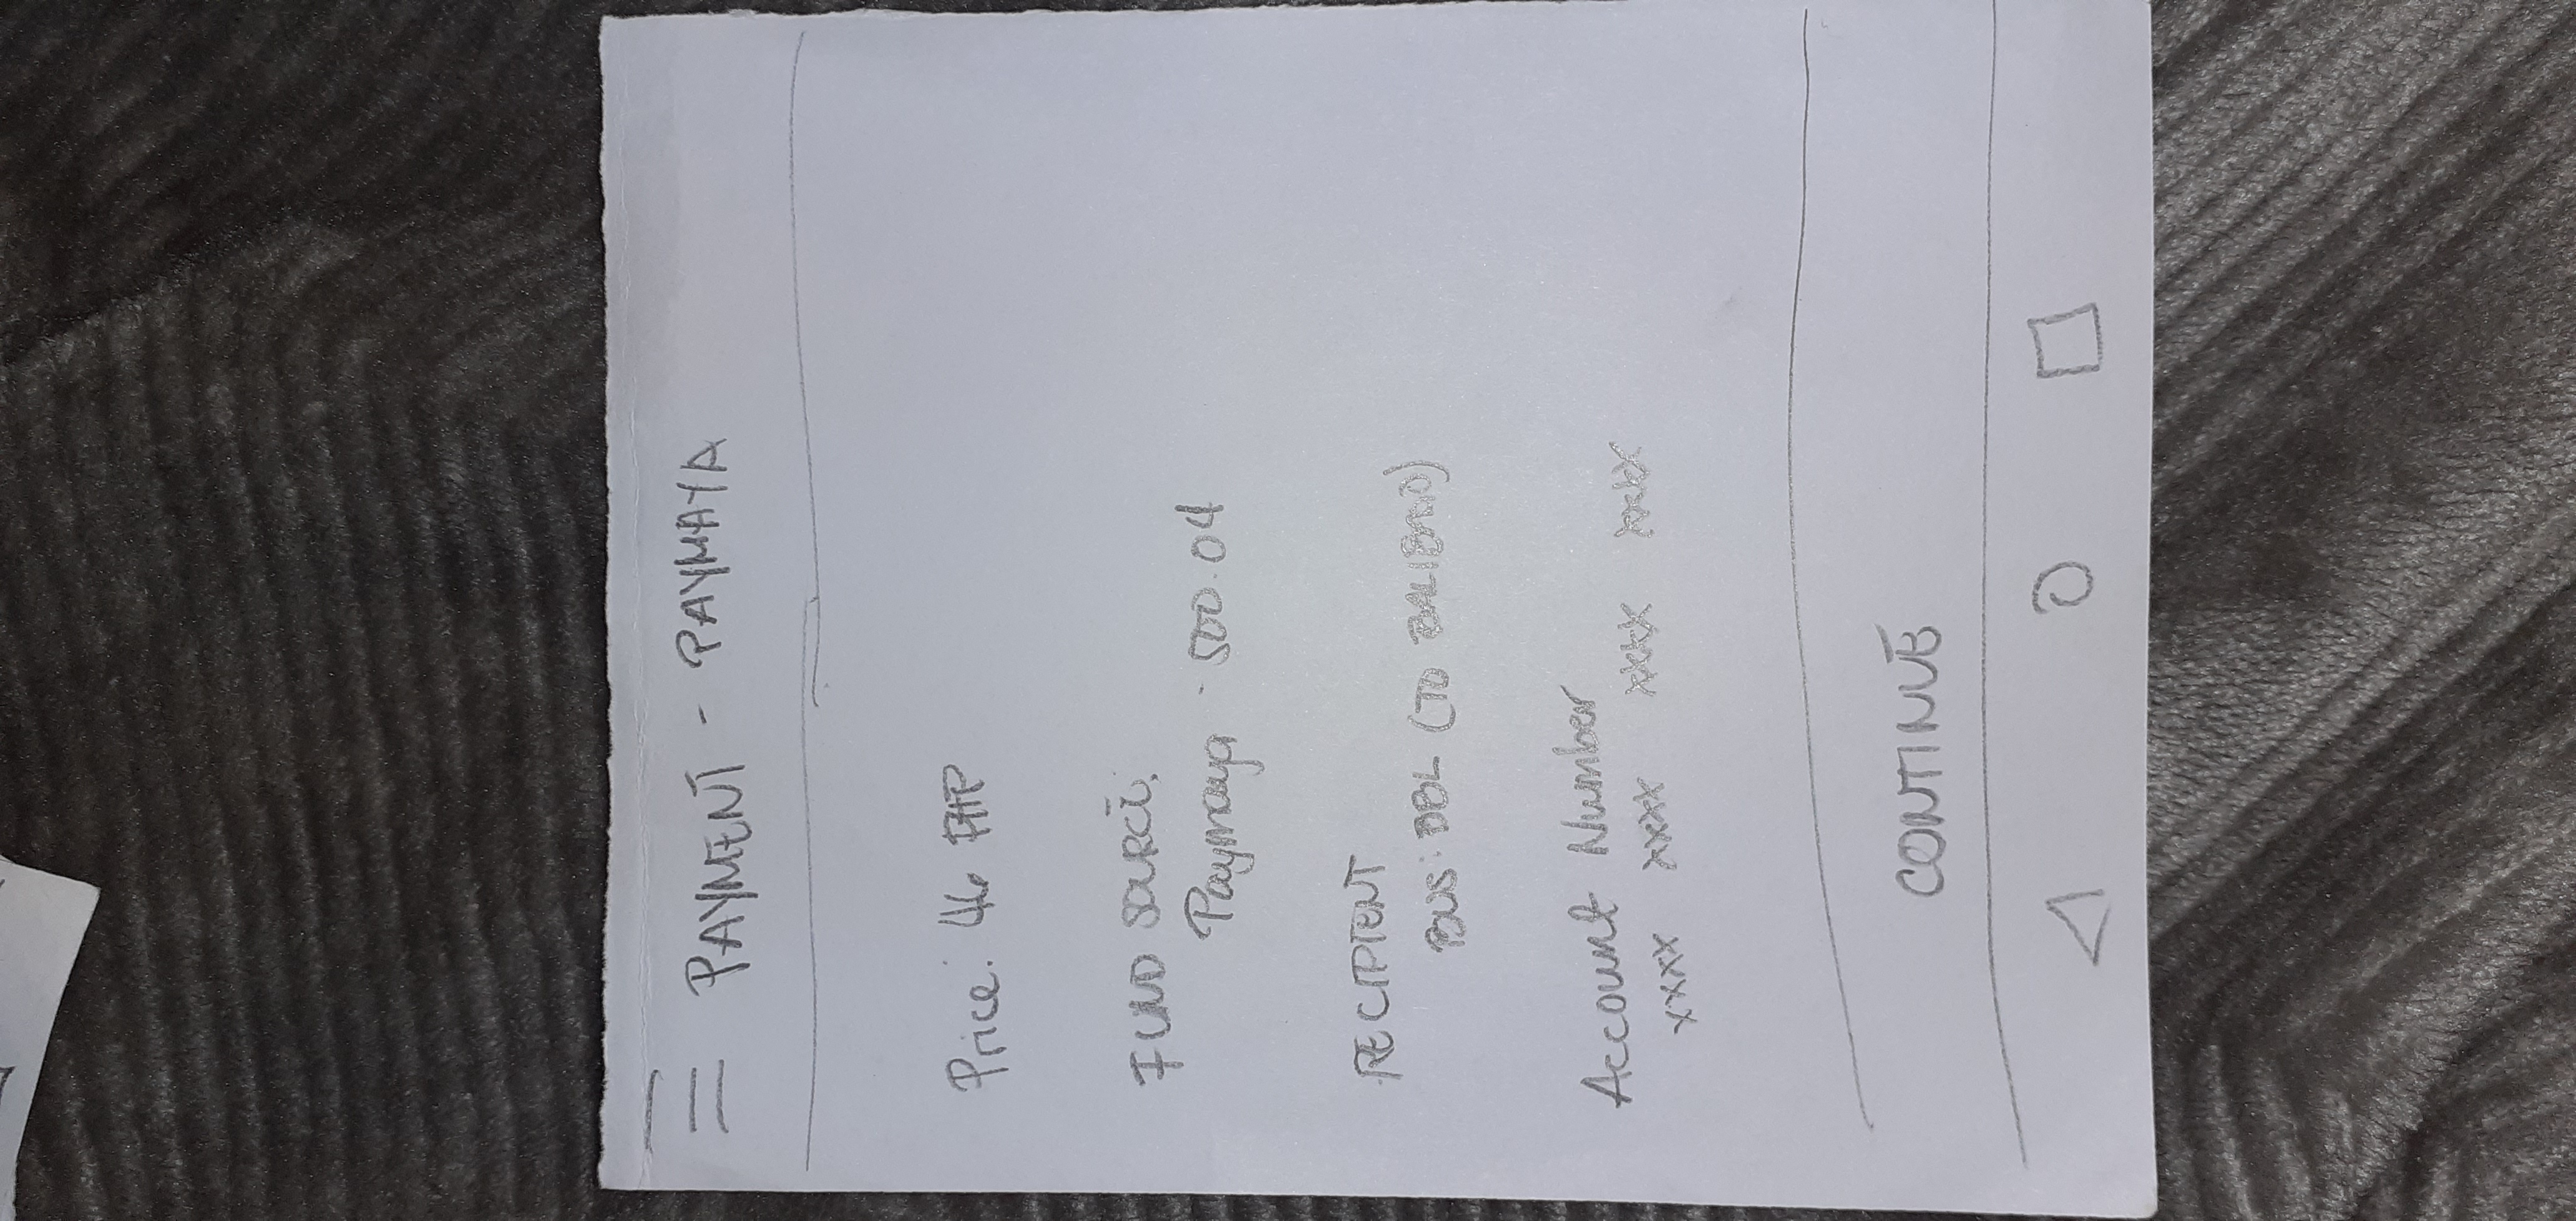 PAYMENT - PAYMAYA
Price: 46 PHP
FUND SOURCE:
Paymaya - 500.04
RECIPIENT
BUS: DBL (TO BALIBAGO)
Account Number
xxxx xxxx xxxx xxxx
CONTINUE